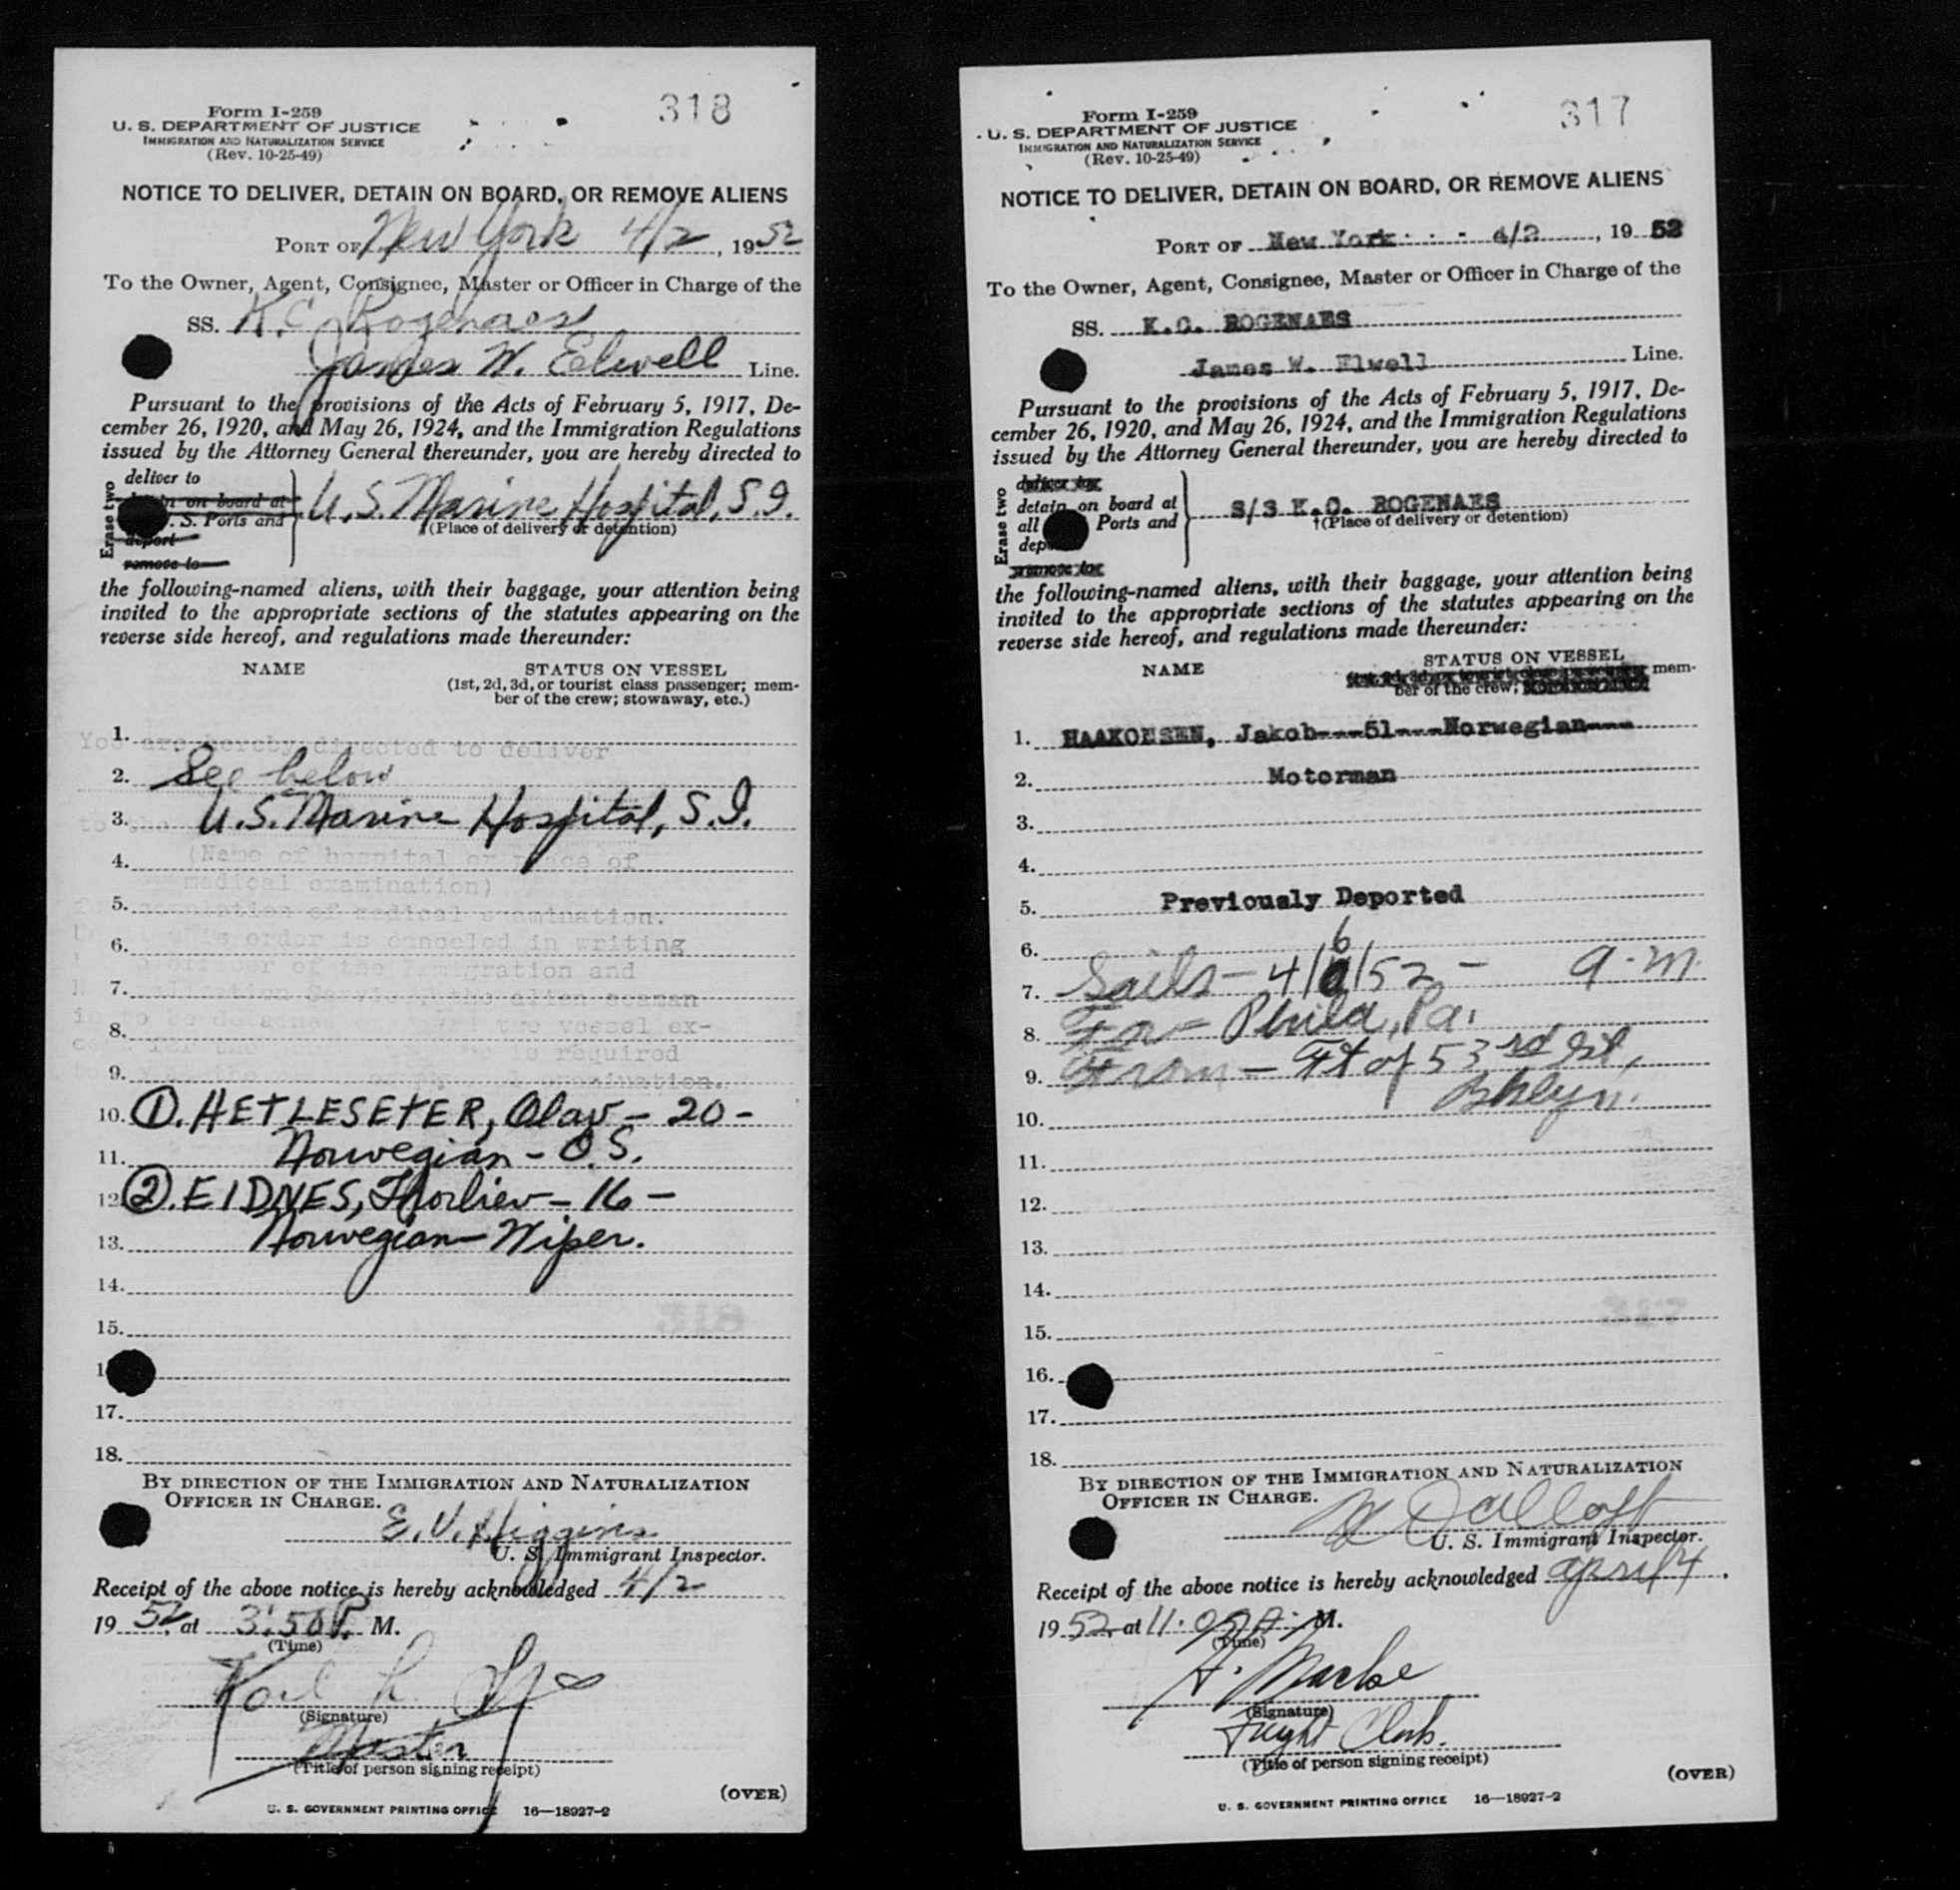 318
Form I-259
U. S. DEPARTMENT OF JUSTICE
IMMIGRATION AND NATURALIZATION SERVICE
(Rev. 10-25-49)
NOTICE TO DELIVER, DETAIN ON BOARD, OR REMOVE ALIENS
PORT OF New York 4/2, 1952
To the Owner, Agent, Consignee, Master or Officer in Charge of the
SS. K.C. Rogenaes
James W. Elwell Line.
Pursuant to the provisions of the Acts of February 5, 1917, De-
cember 26, 1920, and May 26, 1924, and the Immigration Regulations
issued by the Attorney General thereunder, you are hereby directed to
Erase two
deliver to
on board at
S. Ports and
deport
remove to
U.S. Marine Hospital, S.I.
(Place of delivery or detention)
the following-named aliens, with their baggage, your attention being
invited to the appropriate sections of the statutes appearing on the
reverse side hereof, and regulations made thereunder:
NAME STATUS ON VESSEL
(1st, 2d, 3d, or tourist class passenger; mem-
ber of the crew; stowaway, etc.)
1. You are hereby directed to deliver
2. See below
3. U.S. Marine Hospital, S.I.
4. (Name of hospital or place of
medical examination)
5. medical examination.
6. order is canceled in writing
officer of the Immigration and
7.
8. vessel ex-
required
9. examination.
10. 1. HETLESETER, Olav - 20 -
11. Norwegian - O.S.
12. 2. EIDNES, Thorliev - 16 -
13. Norwegian - Wiper.
14.
15.
1
17.
18.
BY DIRECTION OF THE IMMIGRATION AND NATURALIZATION
OFFICER IN CHARGE.
E. V. Higgins
U. S. Immigrant Inspector.
Receipt of the above notice is hereby acknowledged 4/2
1952, at 3:50 P. M.
(Time)
(Signature)
Master
(Title of person signing receipt)
(OVER)
U. S. GOVERNMENT PRINTING OFFICE 16—18927-2
317
Form I-259
U. S. DEPARTMENT OF JUSTICE
IMMIGRATION AND NATURALIZATION SERVICE
(Rev. 10-25-49)
NOTICE TO DELIVER, DETAIN ON BOARD, OR REMOVE ALIENS
PORT OF New York - 4/2, 1952
To the Owner, Agent, Consignee, Master or Officer in Charge of the
SS. K.C. ROGENAES
James W. Elwell Line.
Pursuant to the provisions of the Acts of February 5, 1917, De-
cember 26, 1920, and May 26, 1924, and the Immigration Regulations
issued by the Attorney General thereunder, you are hereby directed to
Erase two
detain on board at
all Ports and
dep
S/S K.C. ROGENAES
†(Place of delivery or detention)
the following-named aliens, with their baggage, your attention being
invited to the appropriate sections of the statutes appearing on the
reverse side hereof, and regulations made thereunder:
NAME STATUS ON VESSEL
mem-
ber of the crew;
1. HAAKONSEN, Jakob---51---Norwegian---
2. Motorman
3.
4.
5. Previously Deported
6. 6
7. Sails - 4/ /52 - A.M.
8. For - Phila, Pa.
9. From - Ft of 53rd St.
10. Bklyn.
11.
12.
13.
14.
15.
16.
17.
18.
BY DIRECTION OF THE IMMIGRATION AND NATURALIZATION
OFFICER IN CHARGE.
U. S. Immigrant Inspector.
Receipt of the above notice is hereby acknowledged April 4,
1952 at M.
(Time)
(Signature)
(Title of person signing receipt)
(OVER)
U. S. GOVERNMENT PRINTING OFFICE 16—18927-2